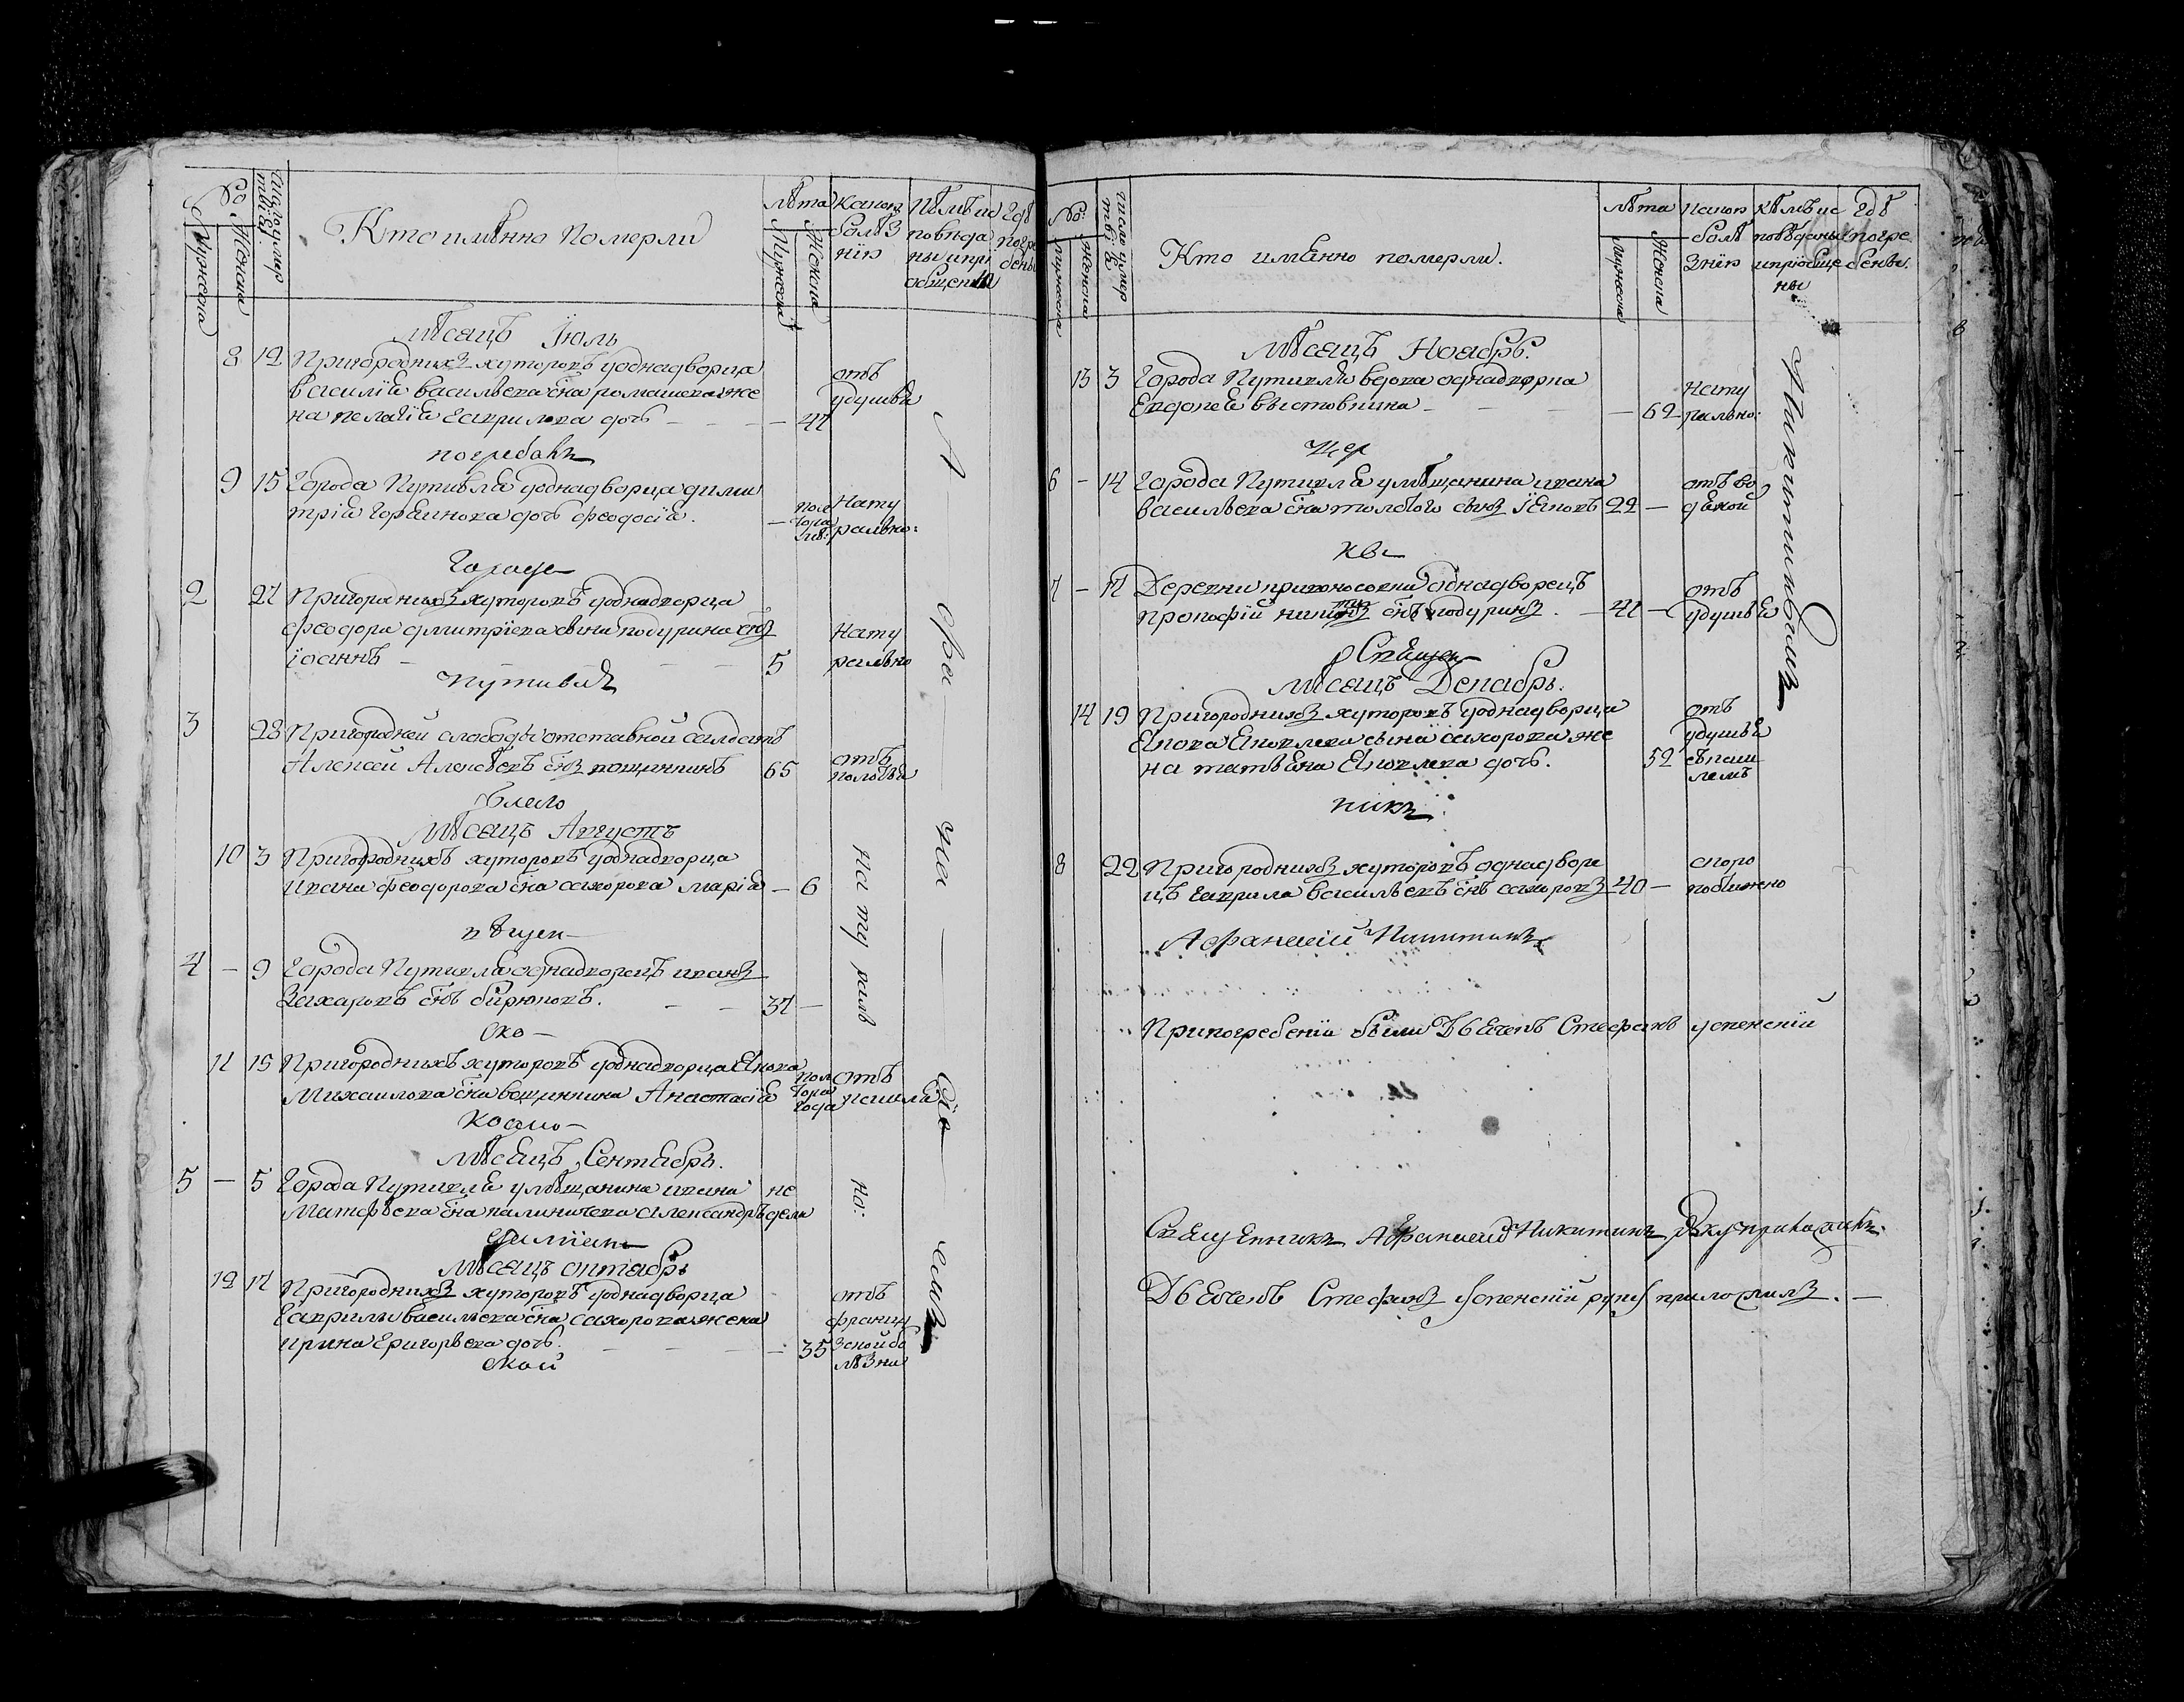 №
Мужеска
Женска
Кто имѣнно померли
лѣта
Мужеска
Женска
какою
болѣз
нїю
кѣмъ ис
повѣда
ны и прі
общены
гдѣ
погре
бены
мѣсяцъ Їюль
8 12 Пригородныхъ хуторовъ уоднадворца
василїя васильева сна ромашева же
на пелагїя гаврилова дочь — 47
отъ
удушья
погребалъ
9 15 Города Путивля уоднадворца дими
трїя горяинова дочь феодосїя. —
пол
тора
нату
рально:
Города
2 27 Пригородныхъ хуторовъ уоднадворца
феодора дмитрїева сына подурина снъ
їоаннъ — 5
нату
рально
путивля
3 28 Пригородней слободы отставной салдатъ
Алексей Алексѣевъ снъ вощининъ 65
отъ
мѣсяцъ Августъ
10 3 Пригородныхъ хуторовъ уоднадворца
ивана феодорова сна сахорова марїя — 6
на ту раль но:
4 — 9 Города Путивля однадворецъ иванъ
Захаровъ снъ бирюковъ. — 37 —
ско —
11 15 Пригородныхъ хуторовъ уоднадворца Якова
Михаилова сна вощинина Анастасїя
пол
тора
года
отъ
кашля
космо —
мѣсяцъ Сентябрь.
5 — 5 Города Путивля умѣщанина ивана
Матфѣева сна калиничева александръ
не
дели
дамїан
мѣсяцъ октябрь
12 17 Пригородныхъ хуторовъ уоднадворца
Гаврилы васильева сна сахорова жена
ирина григорьева дочь. — 35
отъ
францу
зской бо
лѣзни
ской
№
Мужеска
Женска
число умер
твїя
Кто имѣнно померли.
лѣта
Мужеска
Женска
какою
болѣ
знїю
кѣмъ ис
повѣданы
и прїобще
ны
гдѣ
погре
бены.
мѣсяцъ Ноябрь.
13 3 Города Путивля вдова однадворка
— 62
нату
рально:
цер
6 — 14 Города Путивля умѣщанина ивана
васильева сна толстого сынъ їяковъ 22 —
отъ во
дяной
кви
7 — 17 Деревни однадворецъ
прокофїй снъ подуринъ. — 47 —
отъ
удушья
Священ
мѣсяцъ Декабрь.
14 19 Пригородныхъ хуторовъ уоднадворца
Якова Яковлева сына сахорова же
на татьяна Яковлева дочь. 52
отъ
удушья
съ каш
лемъ
никъ
8 22 Пригородныхъ хуторовъ однадворе
цъ гаврила васильевъ снъ сахоровъ 40 —
скоро
постижно
Афанасий Никитинъ
При погребенїи были Дьячекъ Стефанъ успенскїй
Священникъ Афанасий Никитинъ руку приложилъ.
Дьячекъ Стефанъ Успенскїй руку приложилъ. —